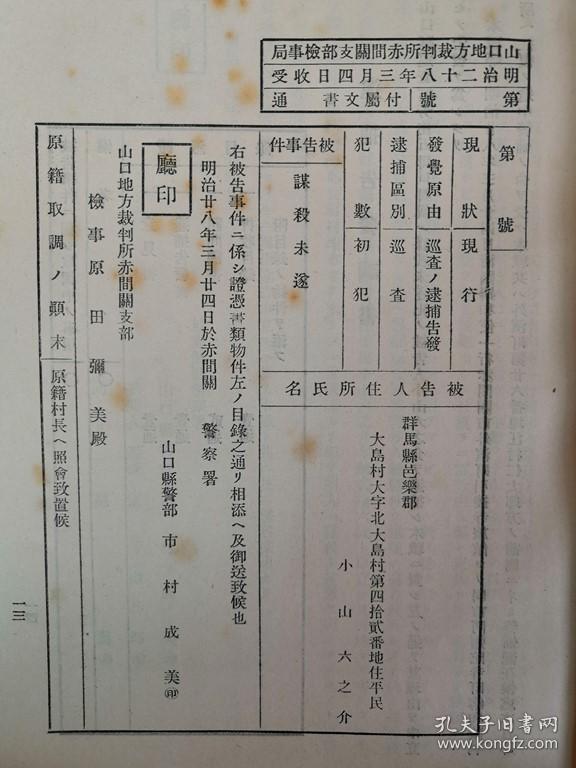 山口地方裁判所赤間關支部檢事局
明治二十八年三月四日收受
第　號　付屬文書　通
第　號
現狀　現行
發覺原由　巡査ノ逮捕告發
逮捕區別　巡査
犯數　初犯
被告事件　謀殺未遂
被告人住所氏名
群馬縣邑樂郡
大島村大字北大島村第四拾貳番地住平民
小山六之介
右被告事件ニ係シ證憑書類物件左ノ目錄之通リ相添ヘ及御送致候也
明治廿八年三月廿四日於赤間關　警察署
廳印
山口縣警部　市村成美㊞
山口地方裁判所赤間關支部
檢事原田彌美殿
原籍取調ノ顚末　原籍村長ヘ照會致置候
一三
孔夫子旧书网
www.kongfz.com